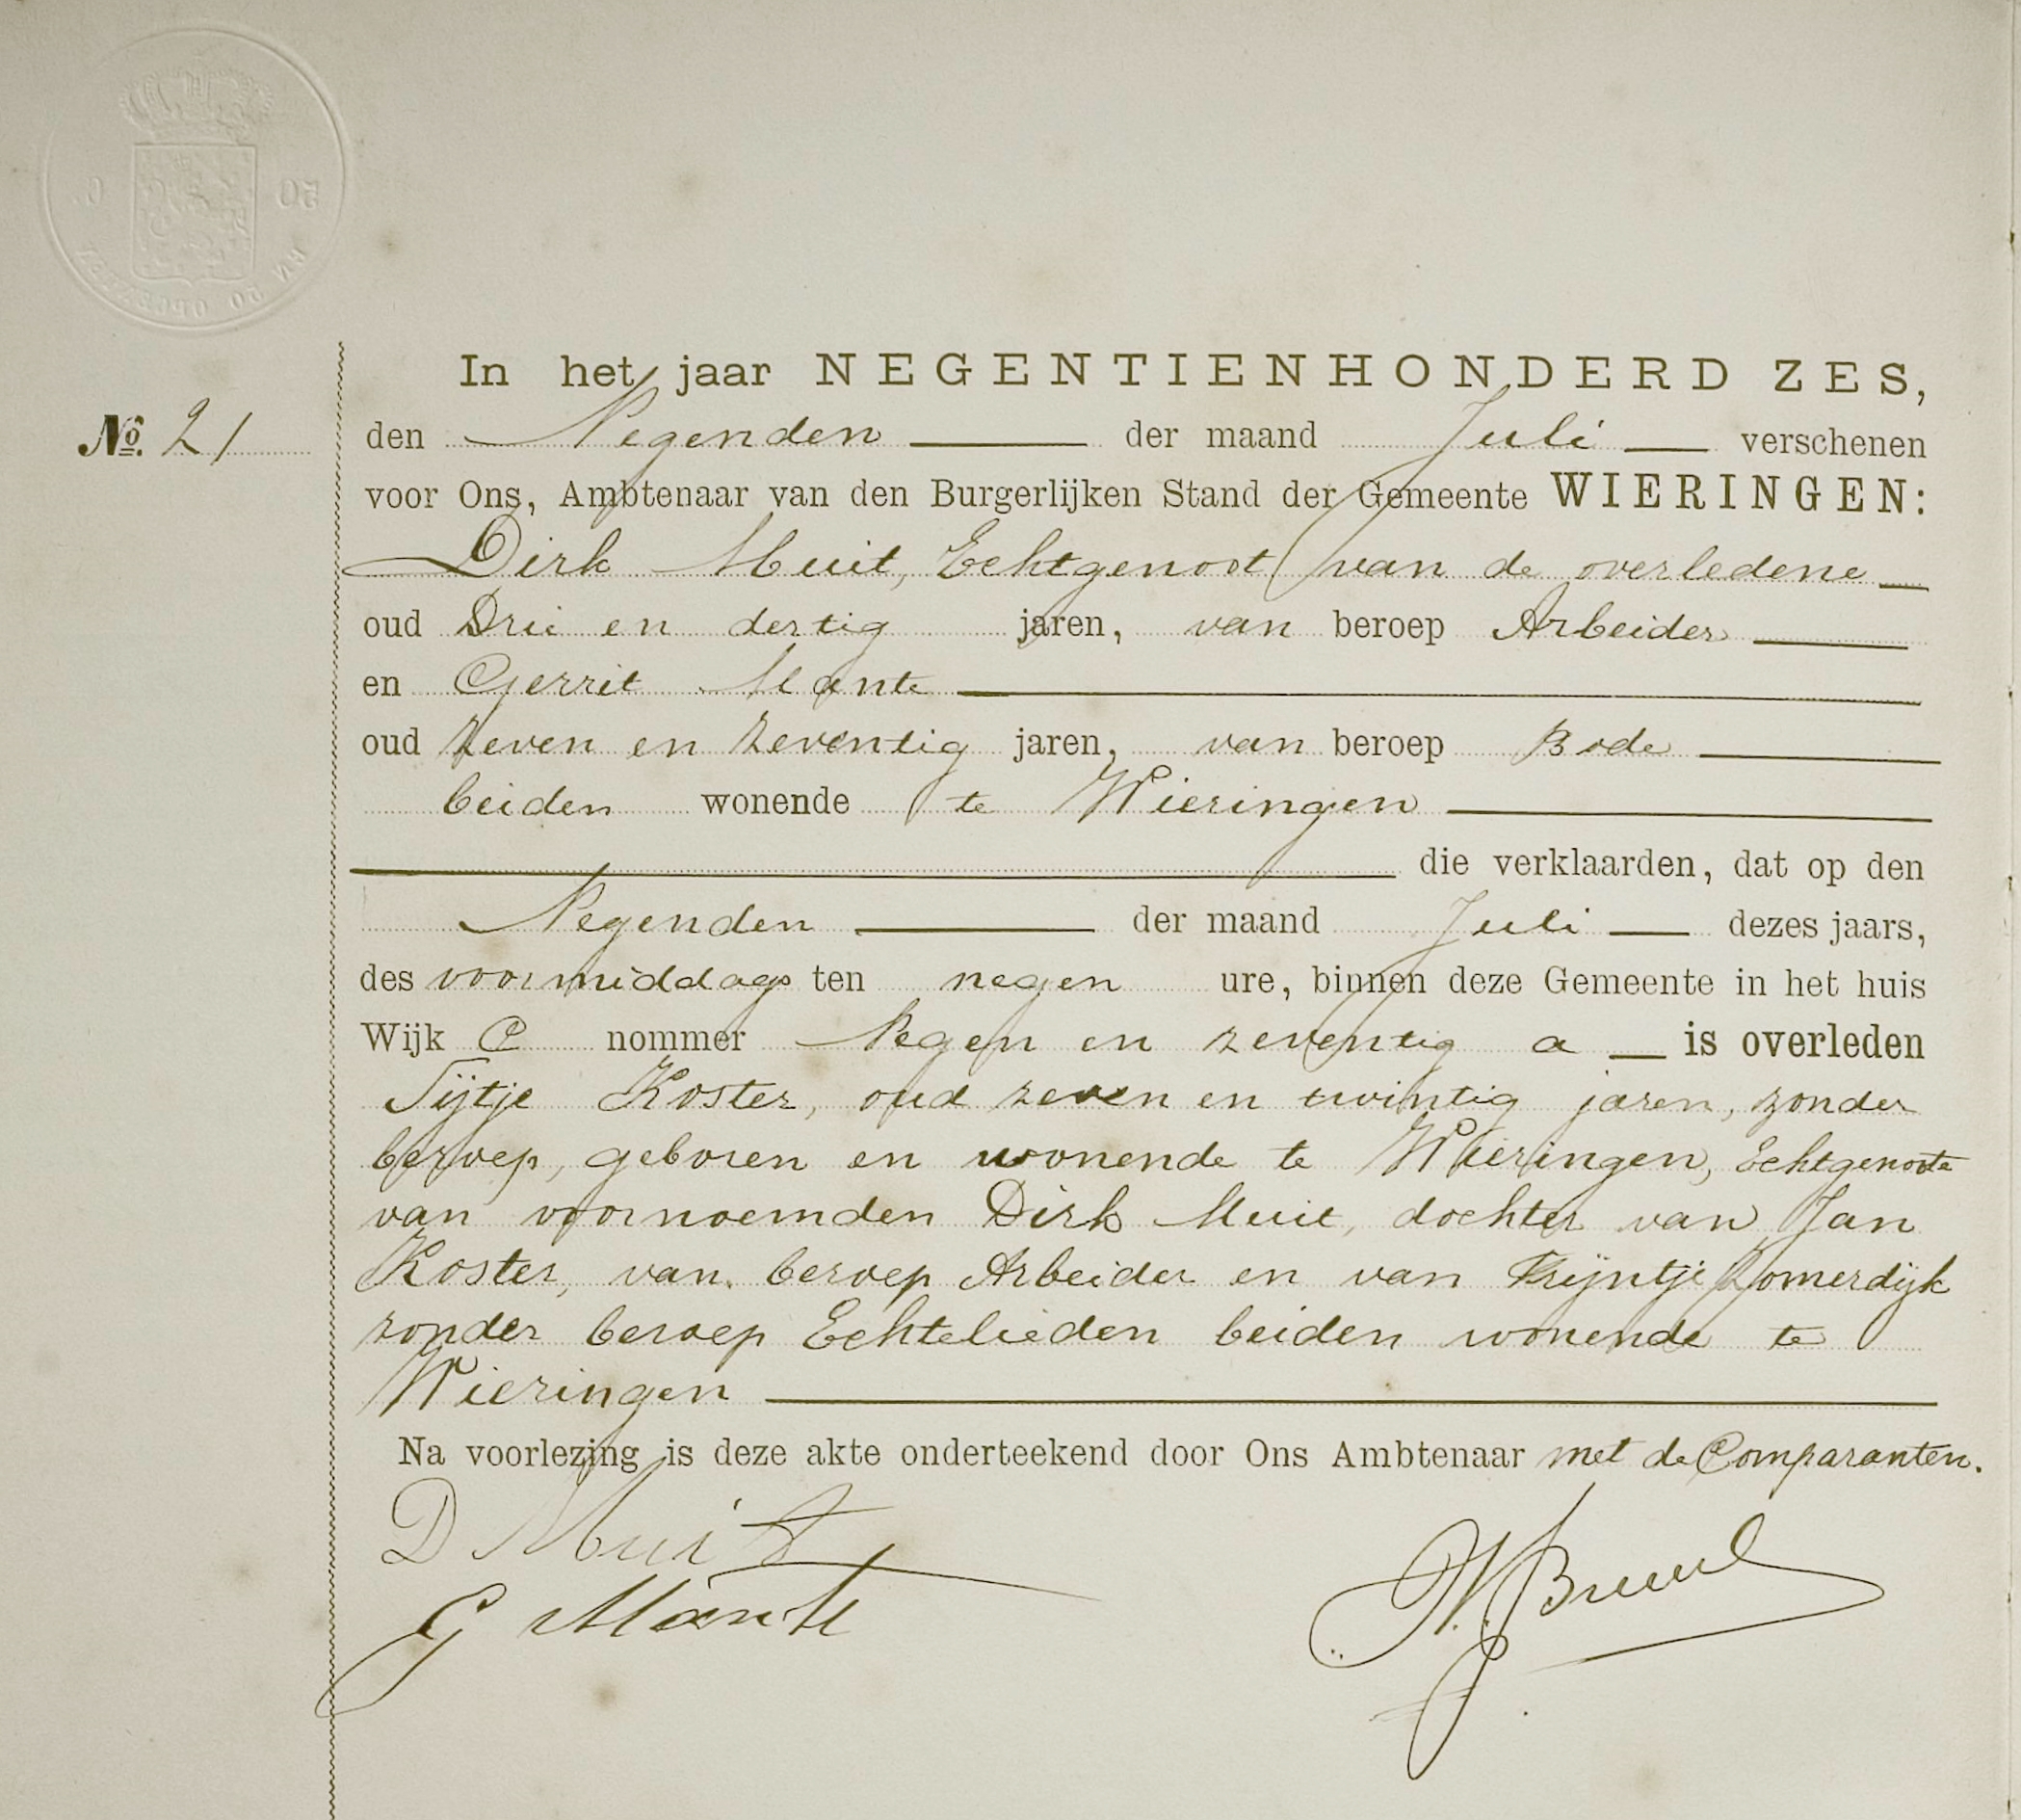 In het jaar NEGENTIENHONDERD ZES,
No. 21
den Negenden der maand Juli verschenen
voor Ons, Ambtenaar van den Burgerlijken Stand der Gemeente WIERINGEN:
Dirk Muit, Echtgenoot van de overledene
oud Drie en dertig jaren, van beroep Arbeider
en Gerrit Mante
oud zeven en zeventig jaren, van beroep Bode
beiden wonende te Wieringen
die verklaarden, dat op den
Negenden der maand Juli dezes jaars,
des voormiddags ten negen ure, binnen deze Gemeente in het huis
Wijk C nommer Negen en zeventig a is overleden
Tijtje Koster, oud zeven en twintig jaren, zonder
beroep, geboren en wonende te Wieringen, Echtgenoote
van voornoemden Dirk Muit, dochter van Jan
Koster, van beroep Arbeider en van Trijntje Zomerdijk
zonder beroep Echtelieden beiden wonende te
Wieringen
Na voorlezing is deze akte onderteekend door Ons Ambtenaar met de Comparanten.
D Muit
G Mante